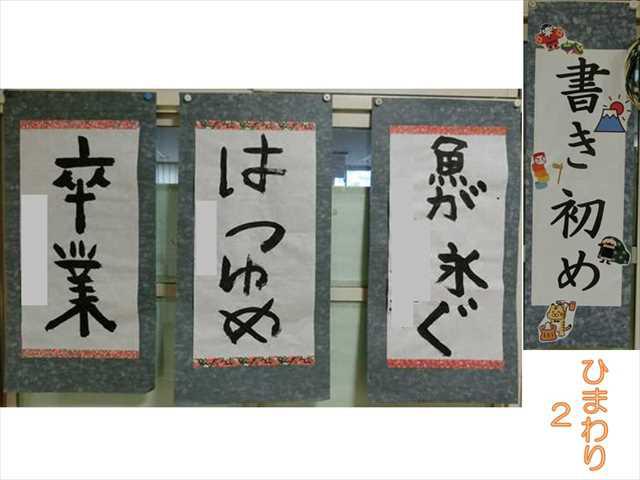 書き初め
魚が
泳ぐ
はつゆめ
卒業
ひまわり
2